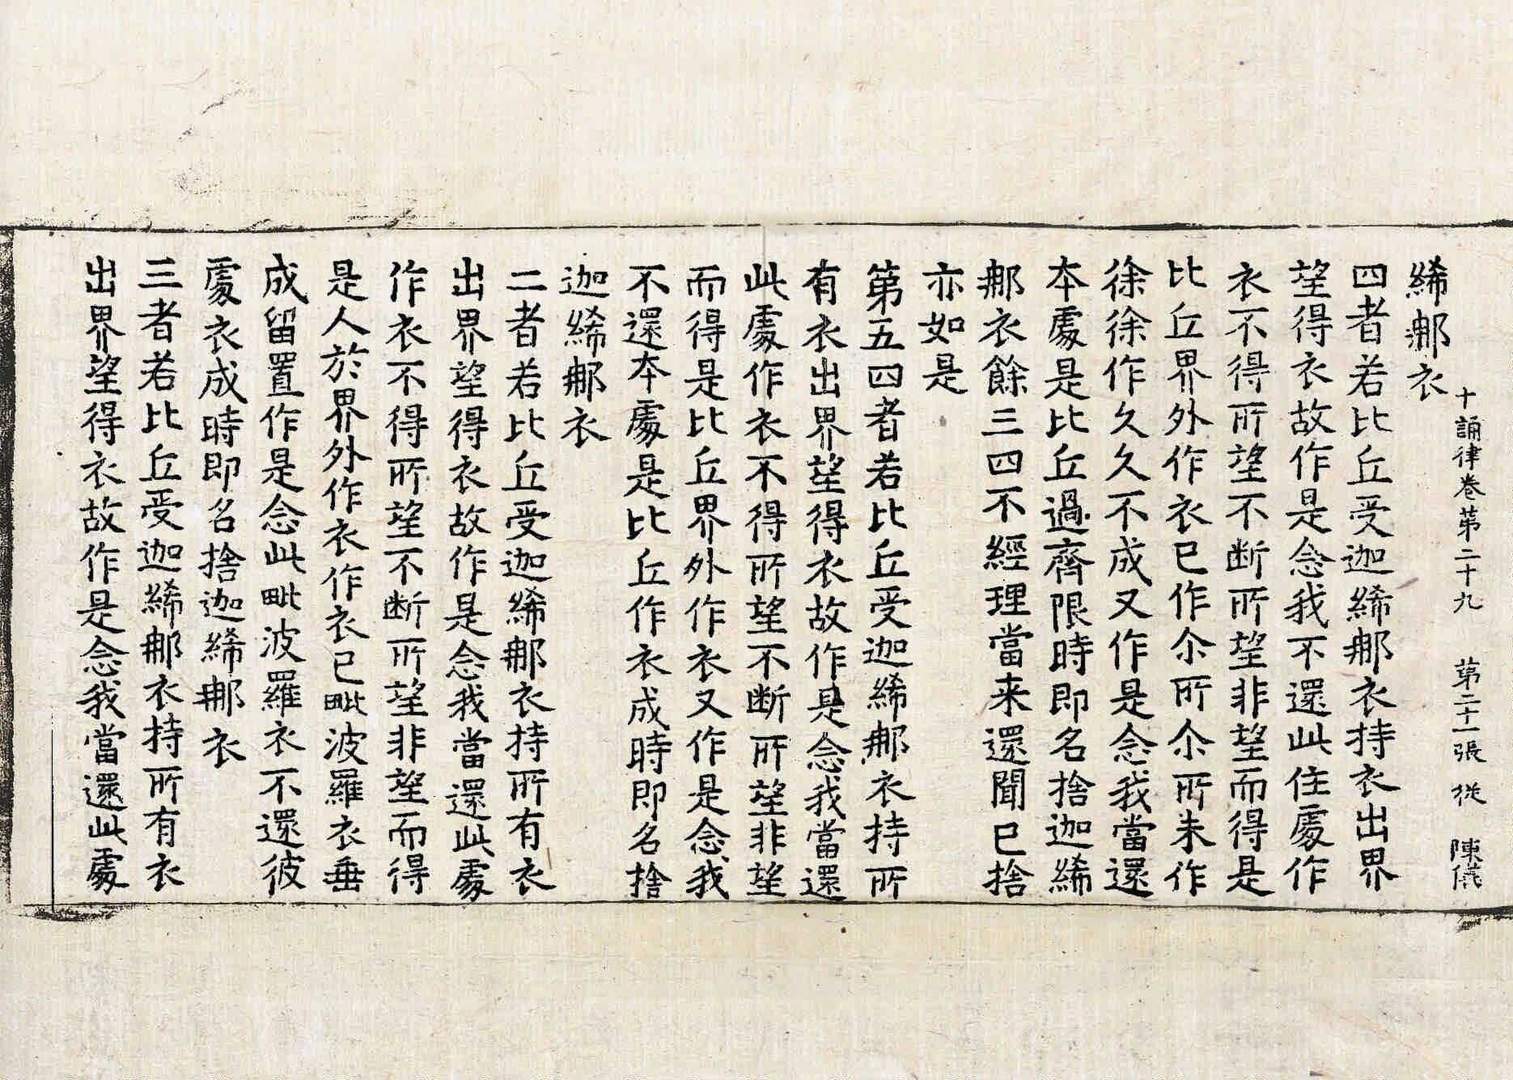 十誦律卷第二十九 第二十一張 從 陳儀
絺那衣
四者若比丘受迦絺那衣持衣出界
望得衣故作是念我不還此住處作
衣不得所望不断所望非望而得是
比丘界外作衣已作尒所尒所未作
徐徐作久久不成又作是念我當還
本處是比丘過齊限時即名捨迦絺
那衣餘三四不經理當来還聞已捨
亦如是
第五四者若比丘受迦絺那衣持所
有衣出界望得衣故作是念我當還
此處作衣不得所望不断所望非望
而得是比丘界外作衣又作是念我
不還本處是比丘作衣成時即名捨
迦絺那衣
二者若比丘受迦絺那衣持所有衣
出界望得衣故作是念我當還此處
作衣不得所望不断所望非望而得
是人於界外作衣作衣已毗波羅衣垂
成留置作是念此毗波羅衣不還彼
處衣成時即名捨迦絺那衣
三者若比丘受迦絺那衣持所有衣
出界望得衣故作是念我當還此處